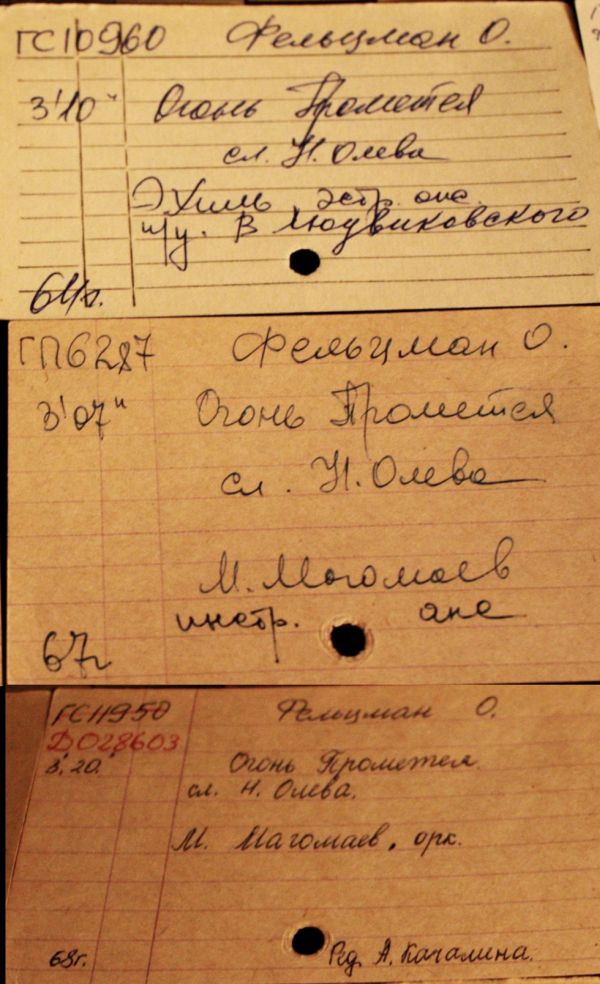 ГС10960 Фельцман О.
3'10" Огонь Прометея
сл. Н. Олева
Э Хиль эстр. анс.
п/у. В Людвиковского
64г.
ГП6287 Фельцман О.
3'07" Огонь Прометея
сл. Н. Олева
М. Магомаев
инстр. анс
67г
ГС11950 Фельцман О.
Д028603
3'.20" Огонь Прометея.
сл. Н. Олева.
М. Магомаев. орк.
68г. Ред. А. Качалина.